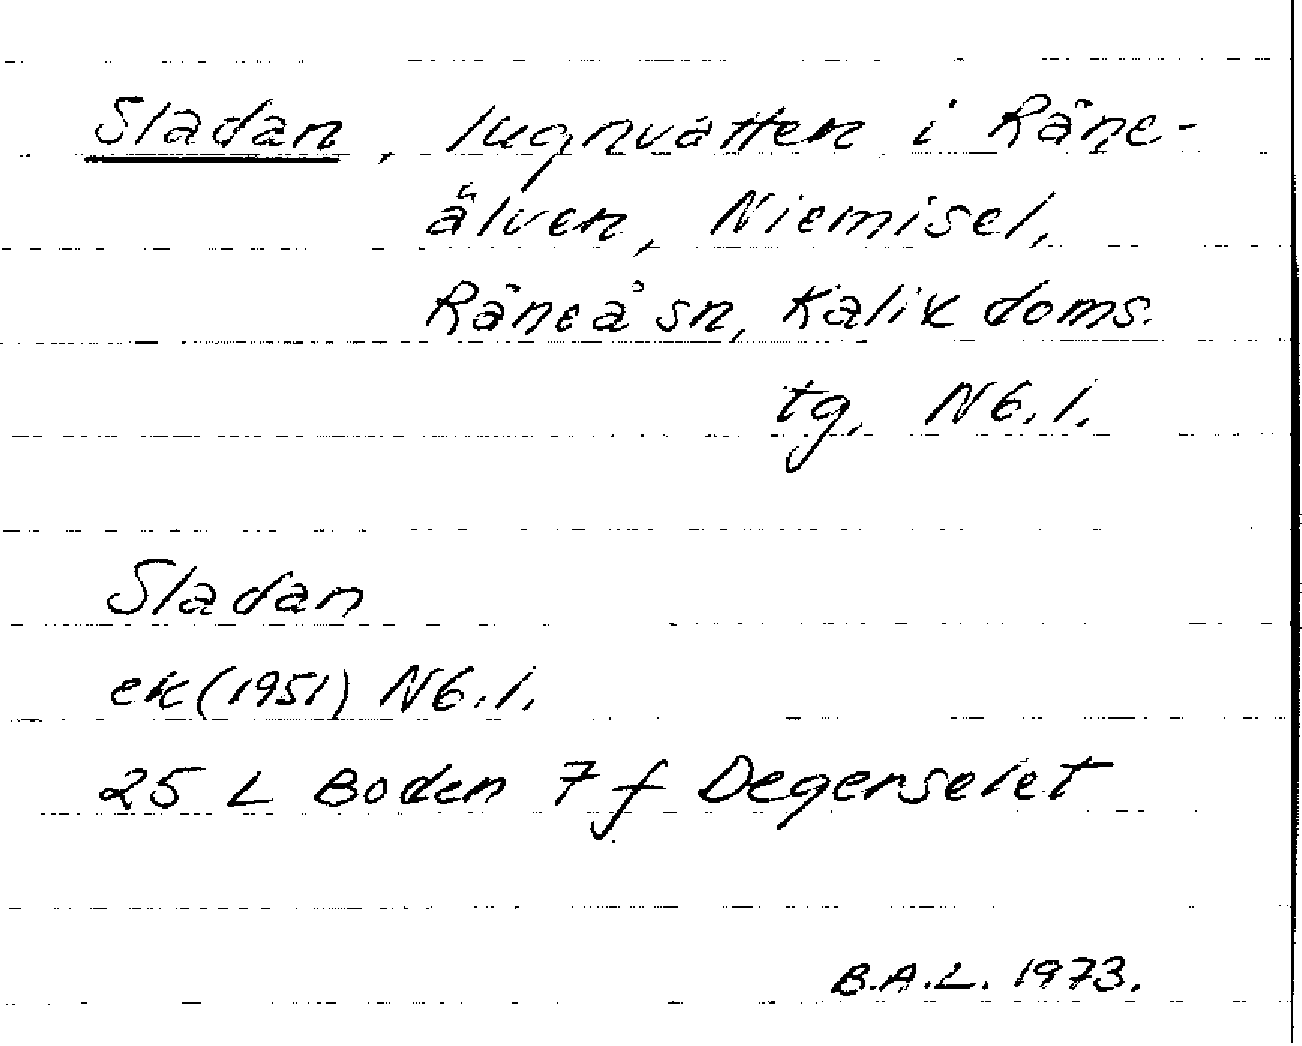 Sladan, lugnvatten i Räne-
älven, Niemisel,
Råneå sn, Kalix doms.
tg. N6.1.
Sladan
ek (1951) N6.1.
25 L Boden 7f Degerselet
B.A.L. 1973.